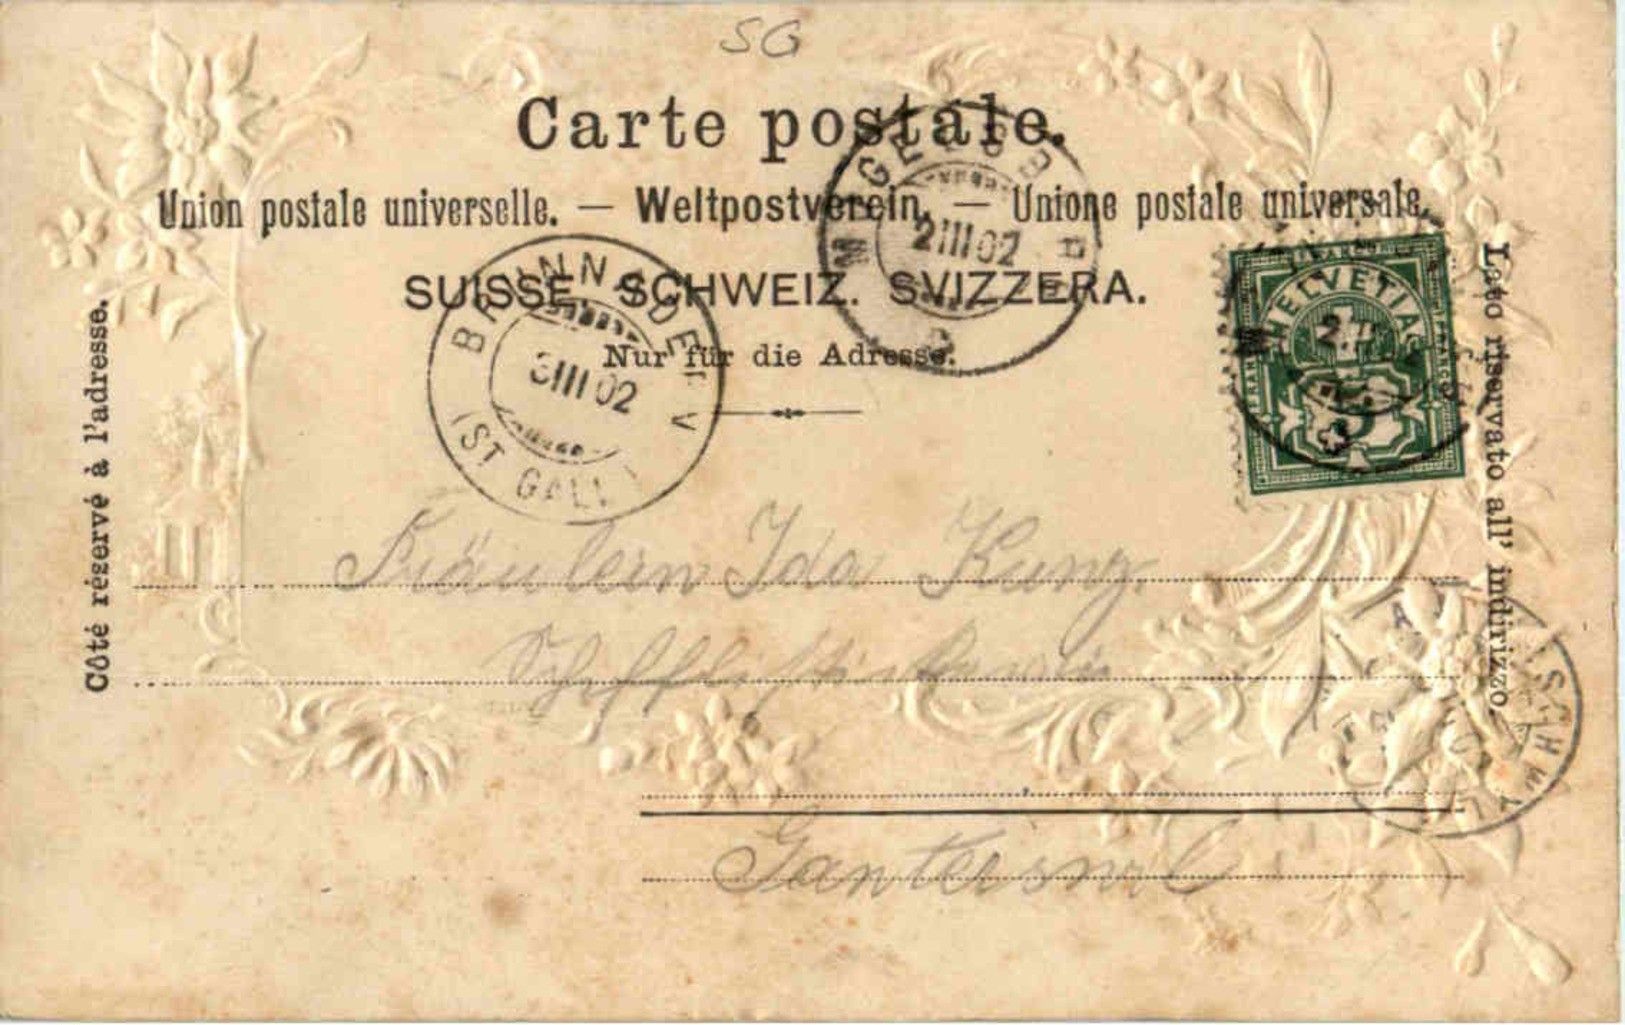 SG
Carte postale.
Union postale universelle. — Weltpostverein. — Unione postale universale.
SUISSE. SCHWEIZ. SVIZZERA.
Nur für die Adresse.
Côté réservé à l'adresse.
Lato riservato all' indirizzo.
2 III 02
BRUNNADERN
3 III 02
(ST. GALL)
HELVETIA
FRANCO
5
Fräulein Ida Kunz
Ganterswil